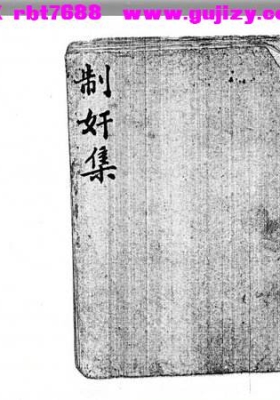 rbt7688 www.gujizy.c
制奸集